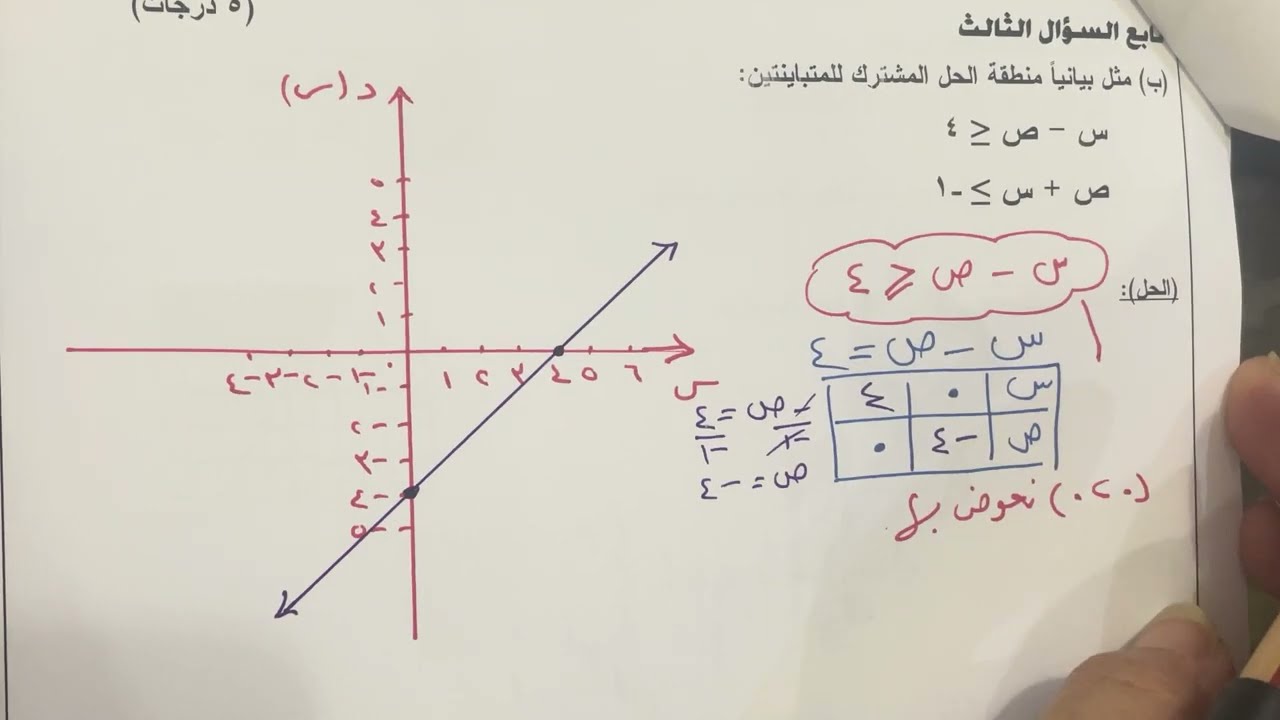 (٥ درجات)
تابع السؤال الثالث
(ب) مثل بيانياً منطقة الحل المشترك للمتباينتين:
س − ص ≥ ٤
ص + س ≤ -١
(الحل):
س − ص ⩾ ٤
س − ص = ٤
س ٠ ٤
ص −٤ ٠
−ص = ٤
−١ −١
ص = −٤
(٠،٠) نعوض بها
د (س)
٥
٤
٣
٢
١
−٤ −٣ −٢ −١ ٠ ١ ٢ ٣ ٤ ٥ ٦
س
−١
−٢
−٣
−٤
−٥